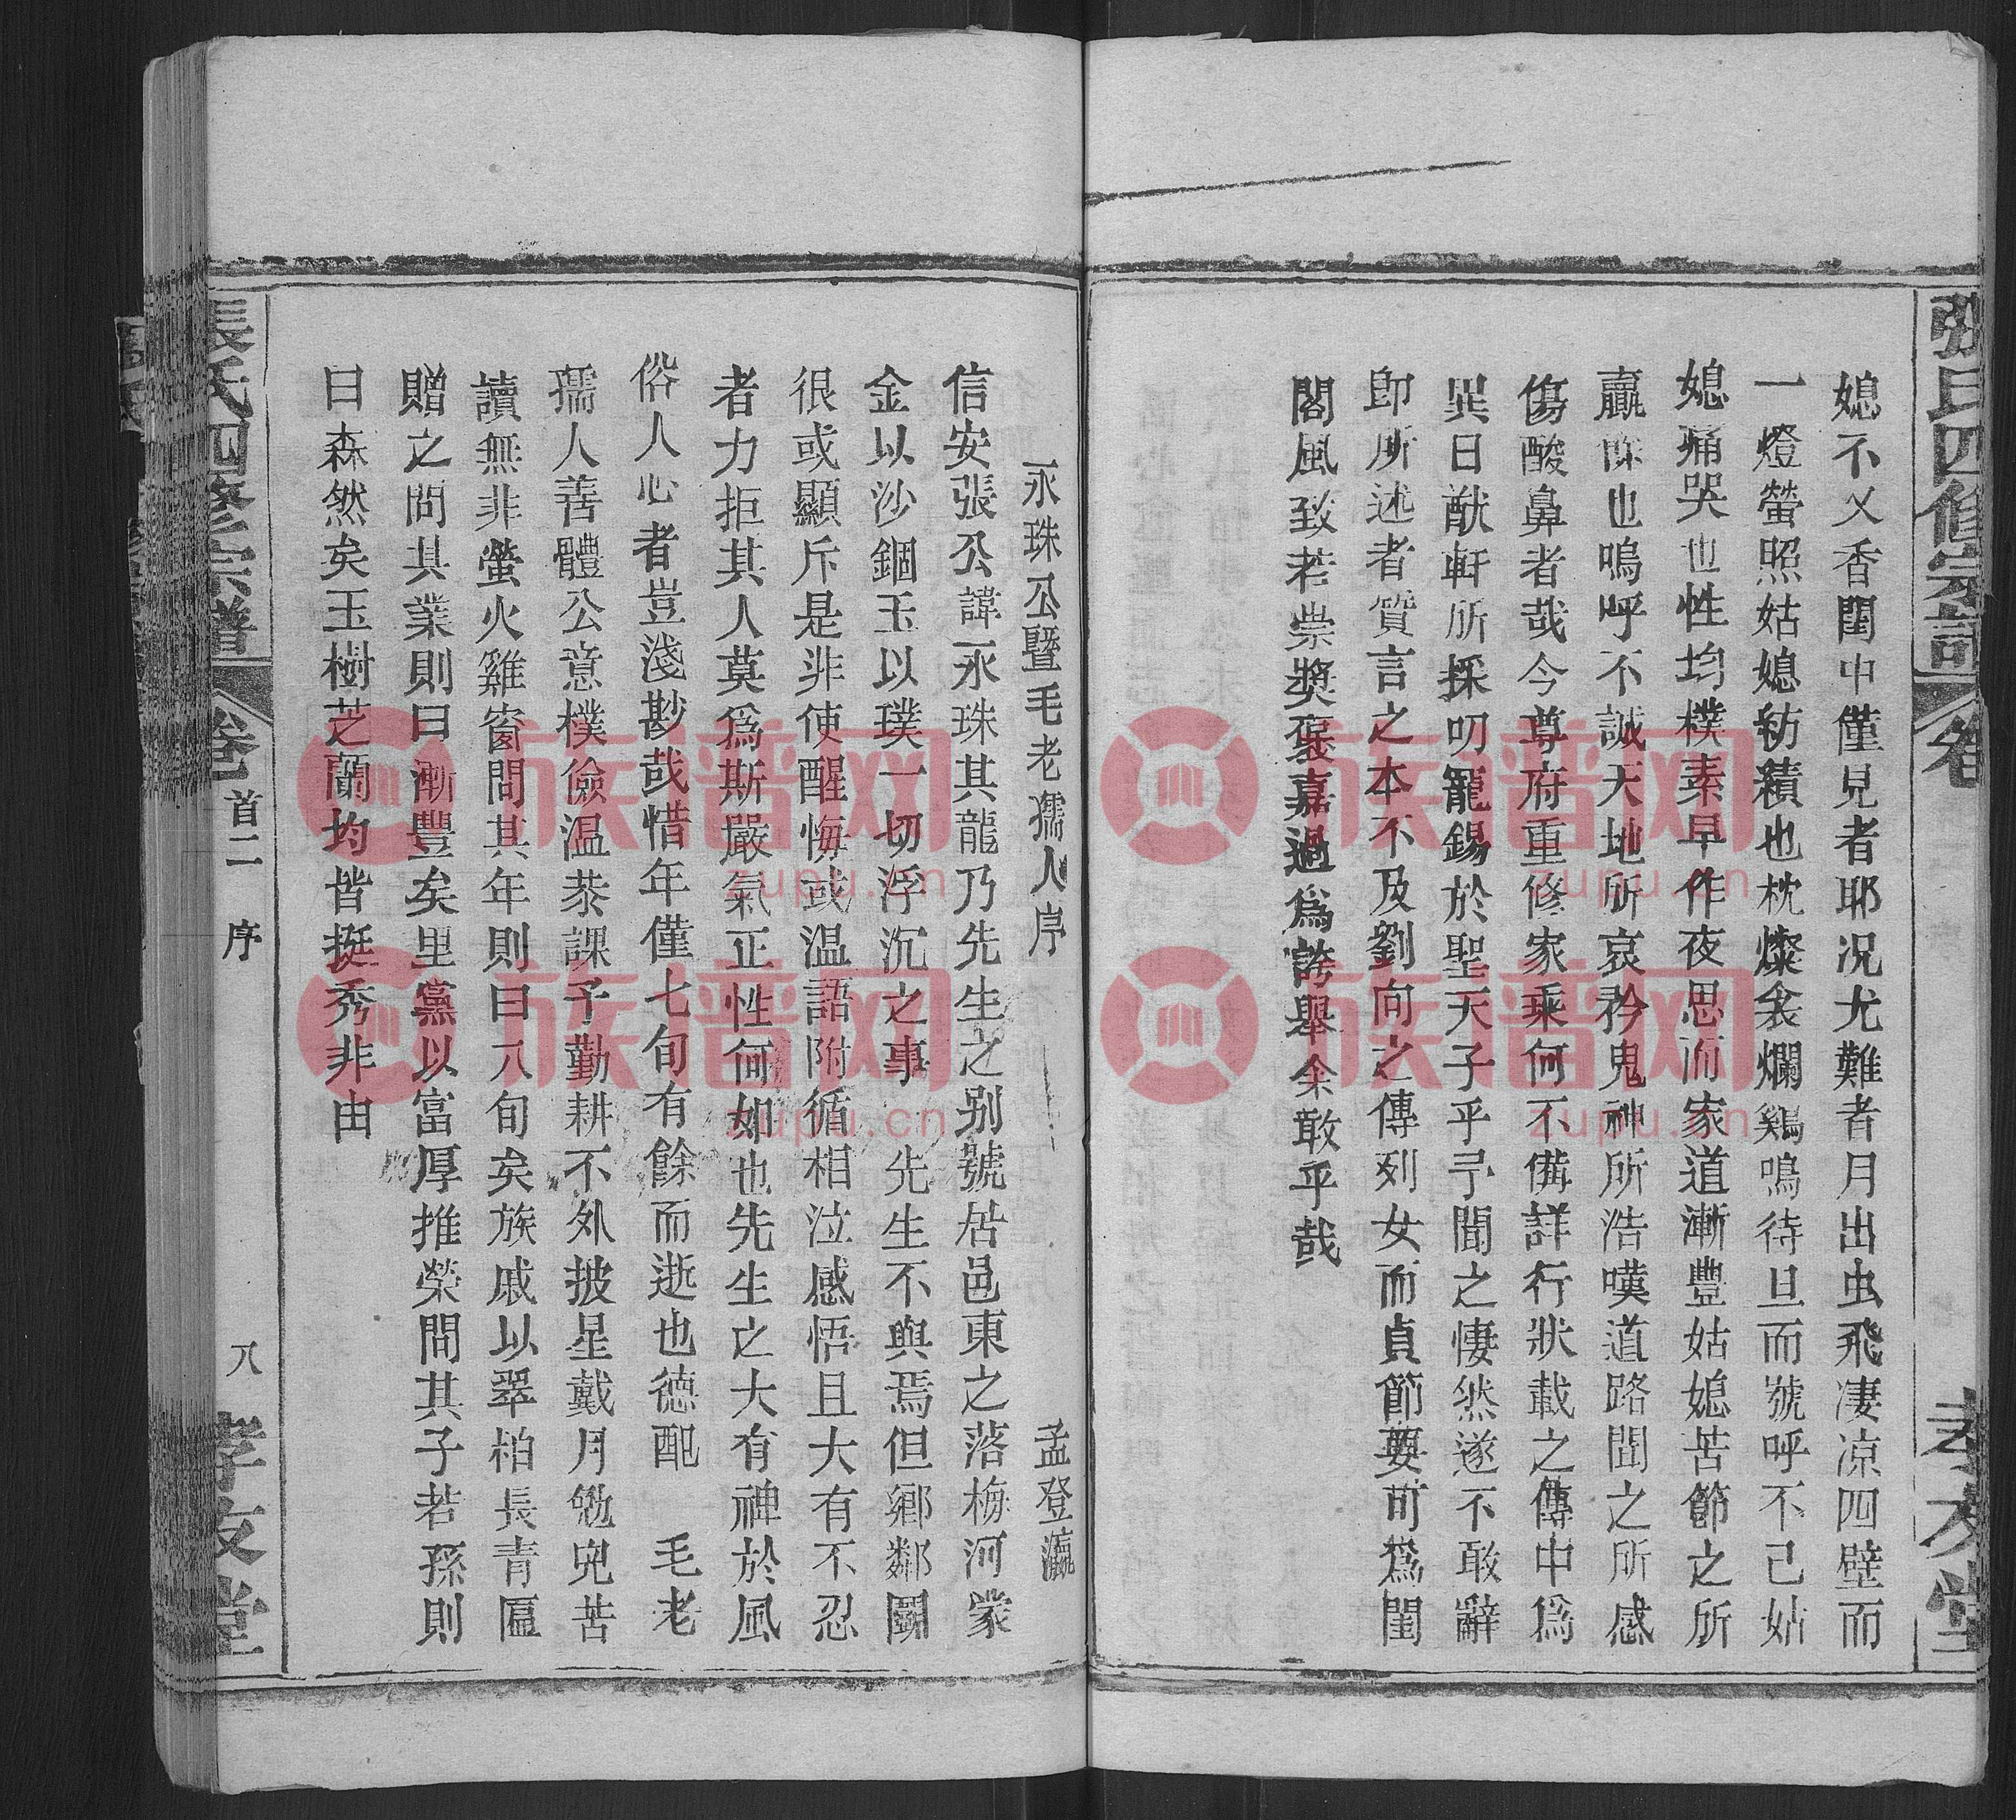 張氏四修宗譜 卷 孝友堂
媳不又香閨中僅見者耶况尤難者月出虫飛凄凉四壁而
一燈螢照姑媳紡績也枕燦衾爛鷄鳴待旦而號呼不已姑
媳痛哭也性均樸素早作夜思而家道漸豐姑媳苦節之所
贏餘也嗚呼不誠天地所哀矜鬼神所浩嘆道路聞之所感
傷酸鼻者哉今尊府重修家乘何不備詳行狀載之傳中爲
異日猷軒所採叨寵錫於聖天子乎予聞之悽然遂不敢辭
即所述者質言之本不及劉向之傳列女而貞節要可爲閨
閣風致若崇獎褒嘉過爲誇舉余敢乎哉
永珠公暨毛老孺人序 孟登瀛
信安張公諱永珠其龍乃先生之别號居邑東之落梅河蒙
金以沙錮玉以璞一切浮沉之事 先生不與焉但鄉鄰鬭
很或顯斥是非使醒悔或温語附循相泣感悟且大有不忍
者力拒其人莫爲斯嚴氣正性何如也先生之大有裨於風
俗人心者豈淺尠哉惜年僅七旬有餘而逝也德配 毛老
孺人善體公意樸儉温恭課子勤耕不外披星戴月勉兒苦
讀無非螢火雞窗問其年則曰八旬矣族戚以翠柏長青匾
贈之問其業則曰漸豐矣里黨以富厚推榮問其子若孫則
曰森然矣玉樹芝蘭均皆挺秀非由
張氏四修宗譜 卷首二 序 八 孝友堂
zupu.cn
族谱网
族谱网
zupu.cn
族谱网
zupu.cn
族谱网
zupu.cn